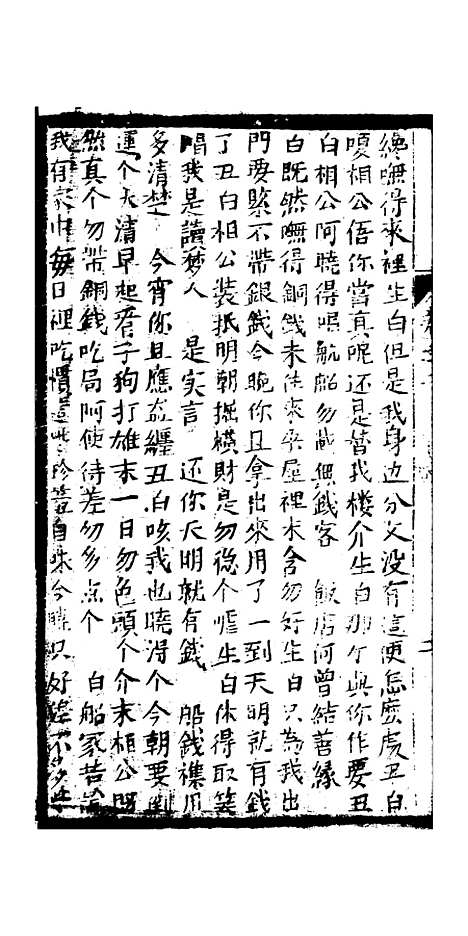 纔嘸得來裡生白但是我身边分文没有這便怎庅處丑白
嗄相公㑚你當真呢还是替我楼介生白那个與你作要丑
白相公阿曉得唱航船勿載無錢客　飯店何曾結善缘
白既然嘸得銅錢末住來來屋裡末舍勿好生白只為我出
門要緊不帶銀錢今晚你且拿出來用了一到天明就有錢
了丑白相公裝扺明朝掘橫財是勿穏个嘘生白休得取笑
唱我是讀梦人　是实言　还你天明就有錢　船錢襍用
多清楚　今宵你且應盘纏丑白咳我也曉得个今朝要到
運个大清早起看子狗打雄末一日勿色頭个介末相公既
然真个勿带銅錢吃局阿使待差勿多点个　白船家苦
我有家中每日裡吃慣自今只好